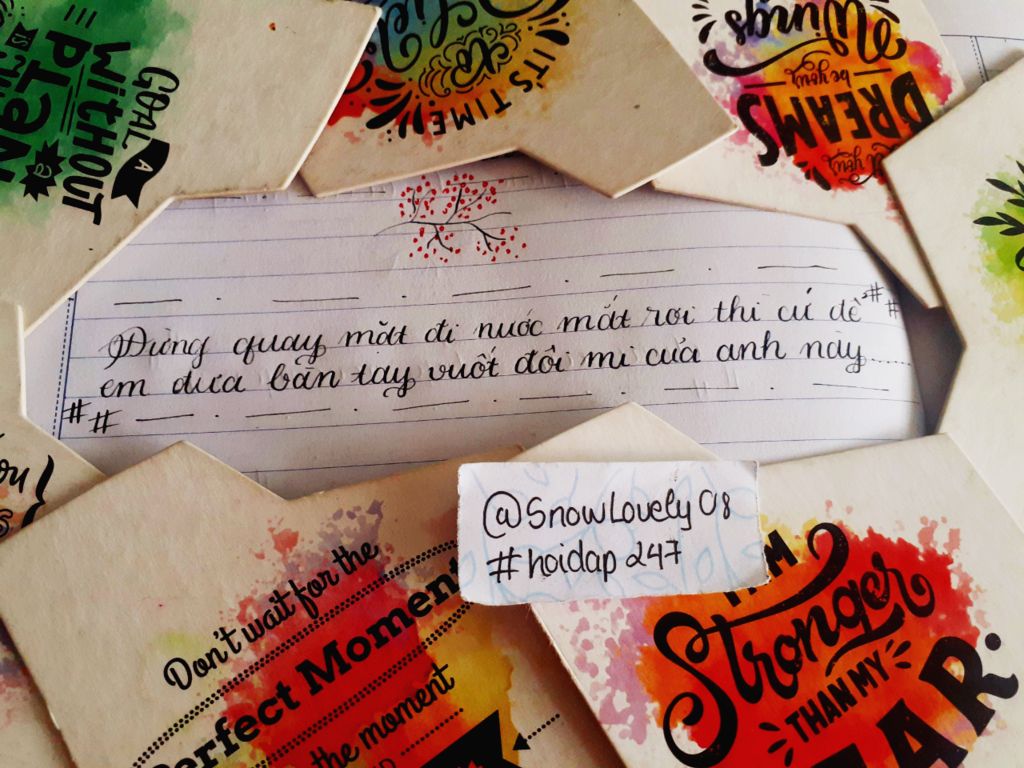 GOAL A
WITHOUT
PLAN
IS
IT'S TIME
TO
If your
DREAMS
be your
Wings
Đừng quay mặt đi nước mắt rơi thì cứ để ##
## em đưa bàn tay vuốt đôi mi của anh này.....
@SnowLovely08
#hoidap247
Don't wait for the
Perfect Moment
the moment
I'M
Stronger
THAN MY